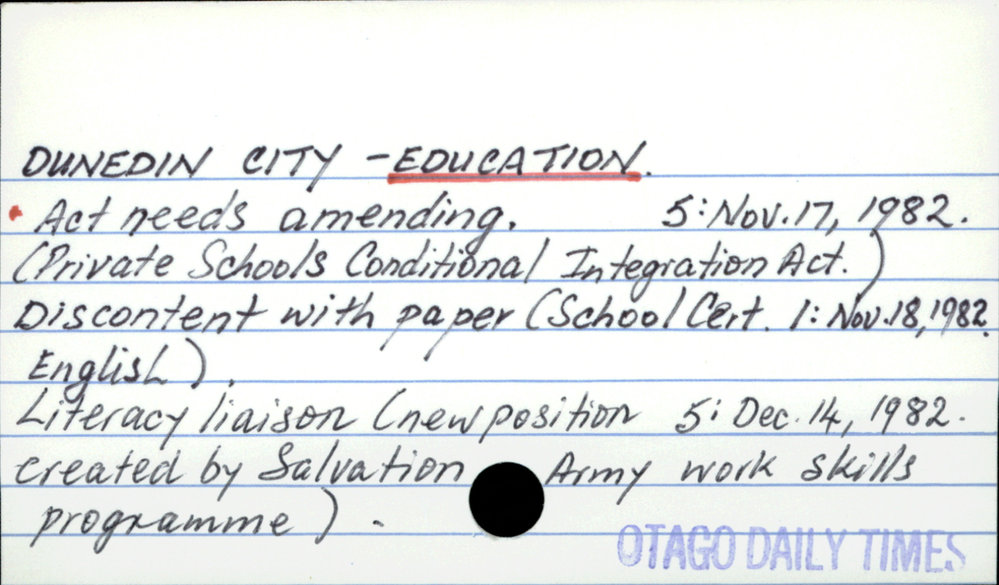 DUNEDIN CITY - EDUCATION.
Act needs amending. 5: Nov. 17, 1982.
(Private Schools Conditional Integration Act.)
Discontent with paper (School Cert. 1: Nov. 18, 1982.
English).
Literacy liaison (new position 5: Dec. 14, 1982.
created by Salvation Army work skills
programme).
OTAGO DAILY TIMES